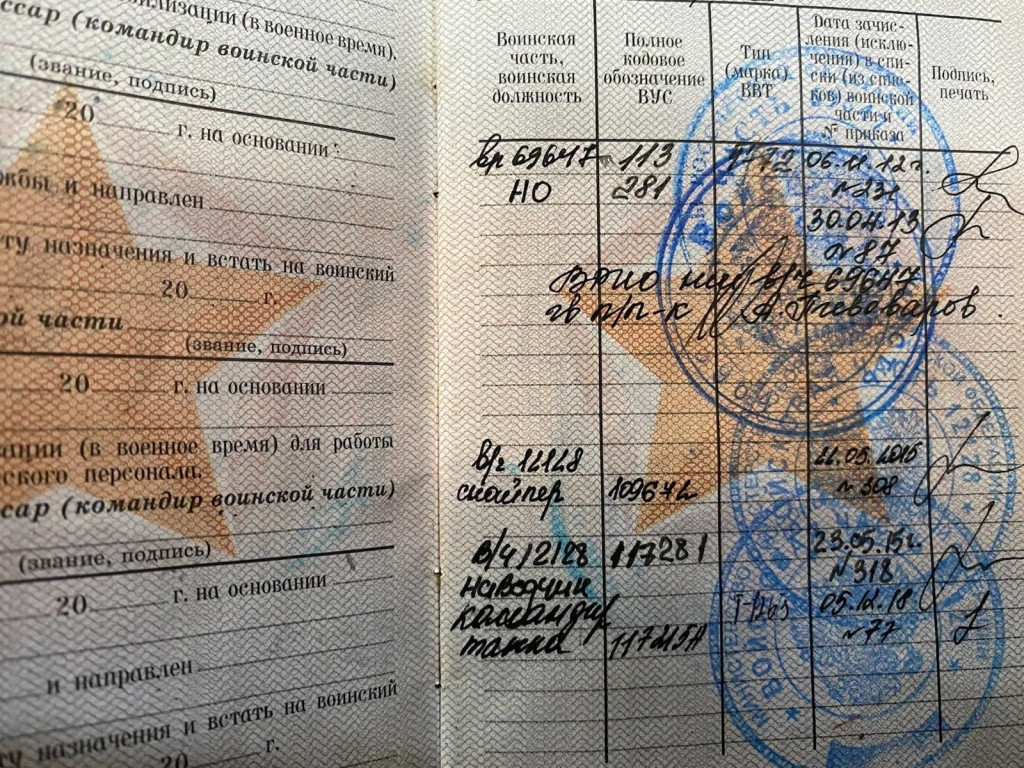 билизации (в военное время).
ссар (командир воинской части)
(звание, подпись)
20 г. на основании
жбы и направлен
ту назначения и встать на воинский
20 г.
ой части
(звание, подпись)
20 г. на основании
ации (в военное время) для работы
ского персонала.
ссар (командир воинской части)
(звание, подпись)
20 г. на основании
и направлен
ту назначения и встать на воинский
20 г.
Воинская часть, воинская должность
Полное кодовое обозначение ВУС
Тип (марка) ВВТ
Дата зачис-
ления (исклю-
чения) в спи-
ски (из спис-
ков) воинской
части и
№ приказа
Подпись, печать
69647 113 06.11.12 г.
НО 281
30.04.13
№87
ВРИО в/ч 69647
гв п/п-к А. Пивоваров
в/ч 12128 22.05.2015
снайпер 109672 № 308
в/ч 12128 117281 23.05.15г.
наводчик № 318
командир 05.12.18
танка №77